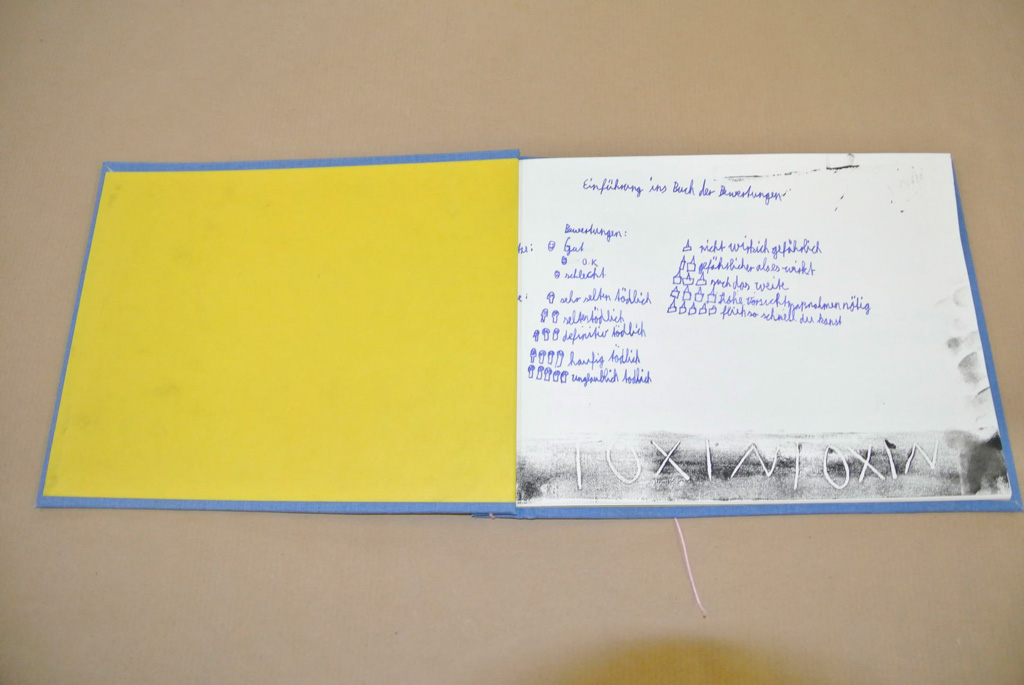 Einführung ins Buch der Bewertungen
Bewertungen:
Gut
O.K
schlecht
sehr selten tödlich
selten tödlich
definitiv tödlich
haufig tödlich
unglaublich tödlich
nicht wirklich gefährlich
gefährlicher als es wirkt
such das weite
hohe Vorsichtmaßnahmen nötig
flieh so schnell du kanst
TOXIN TOXIN